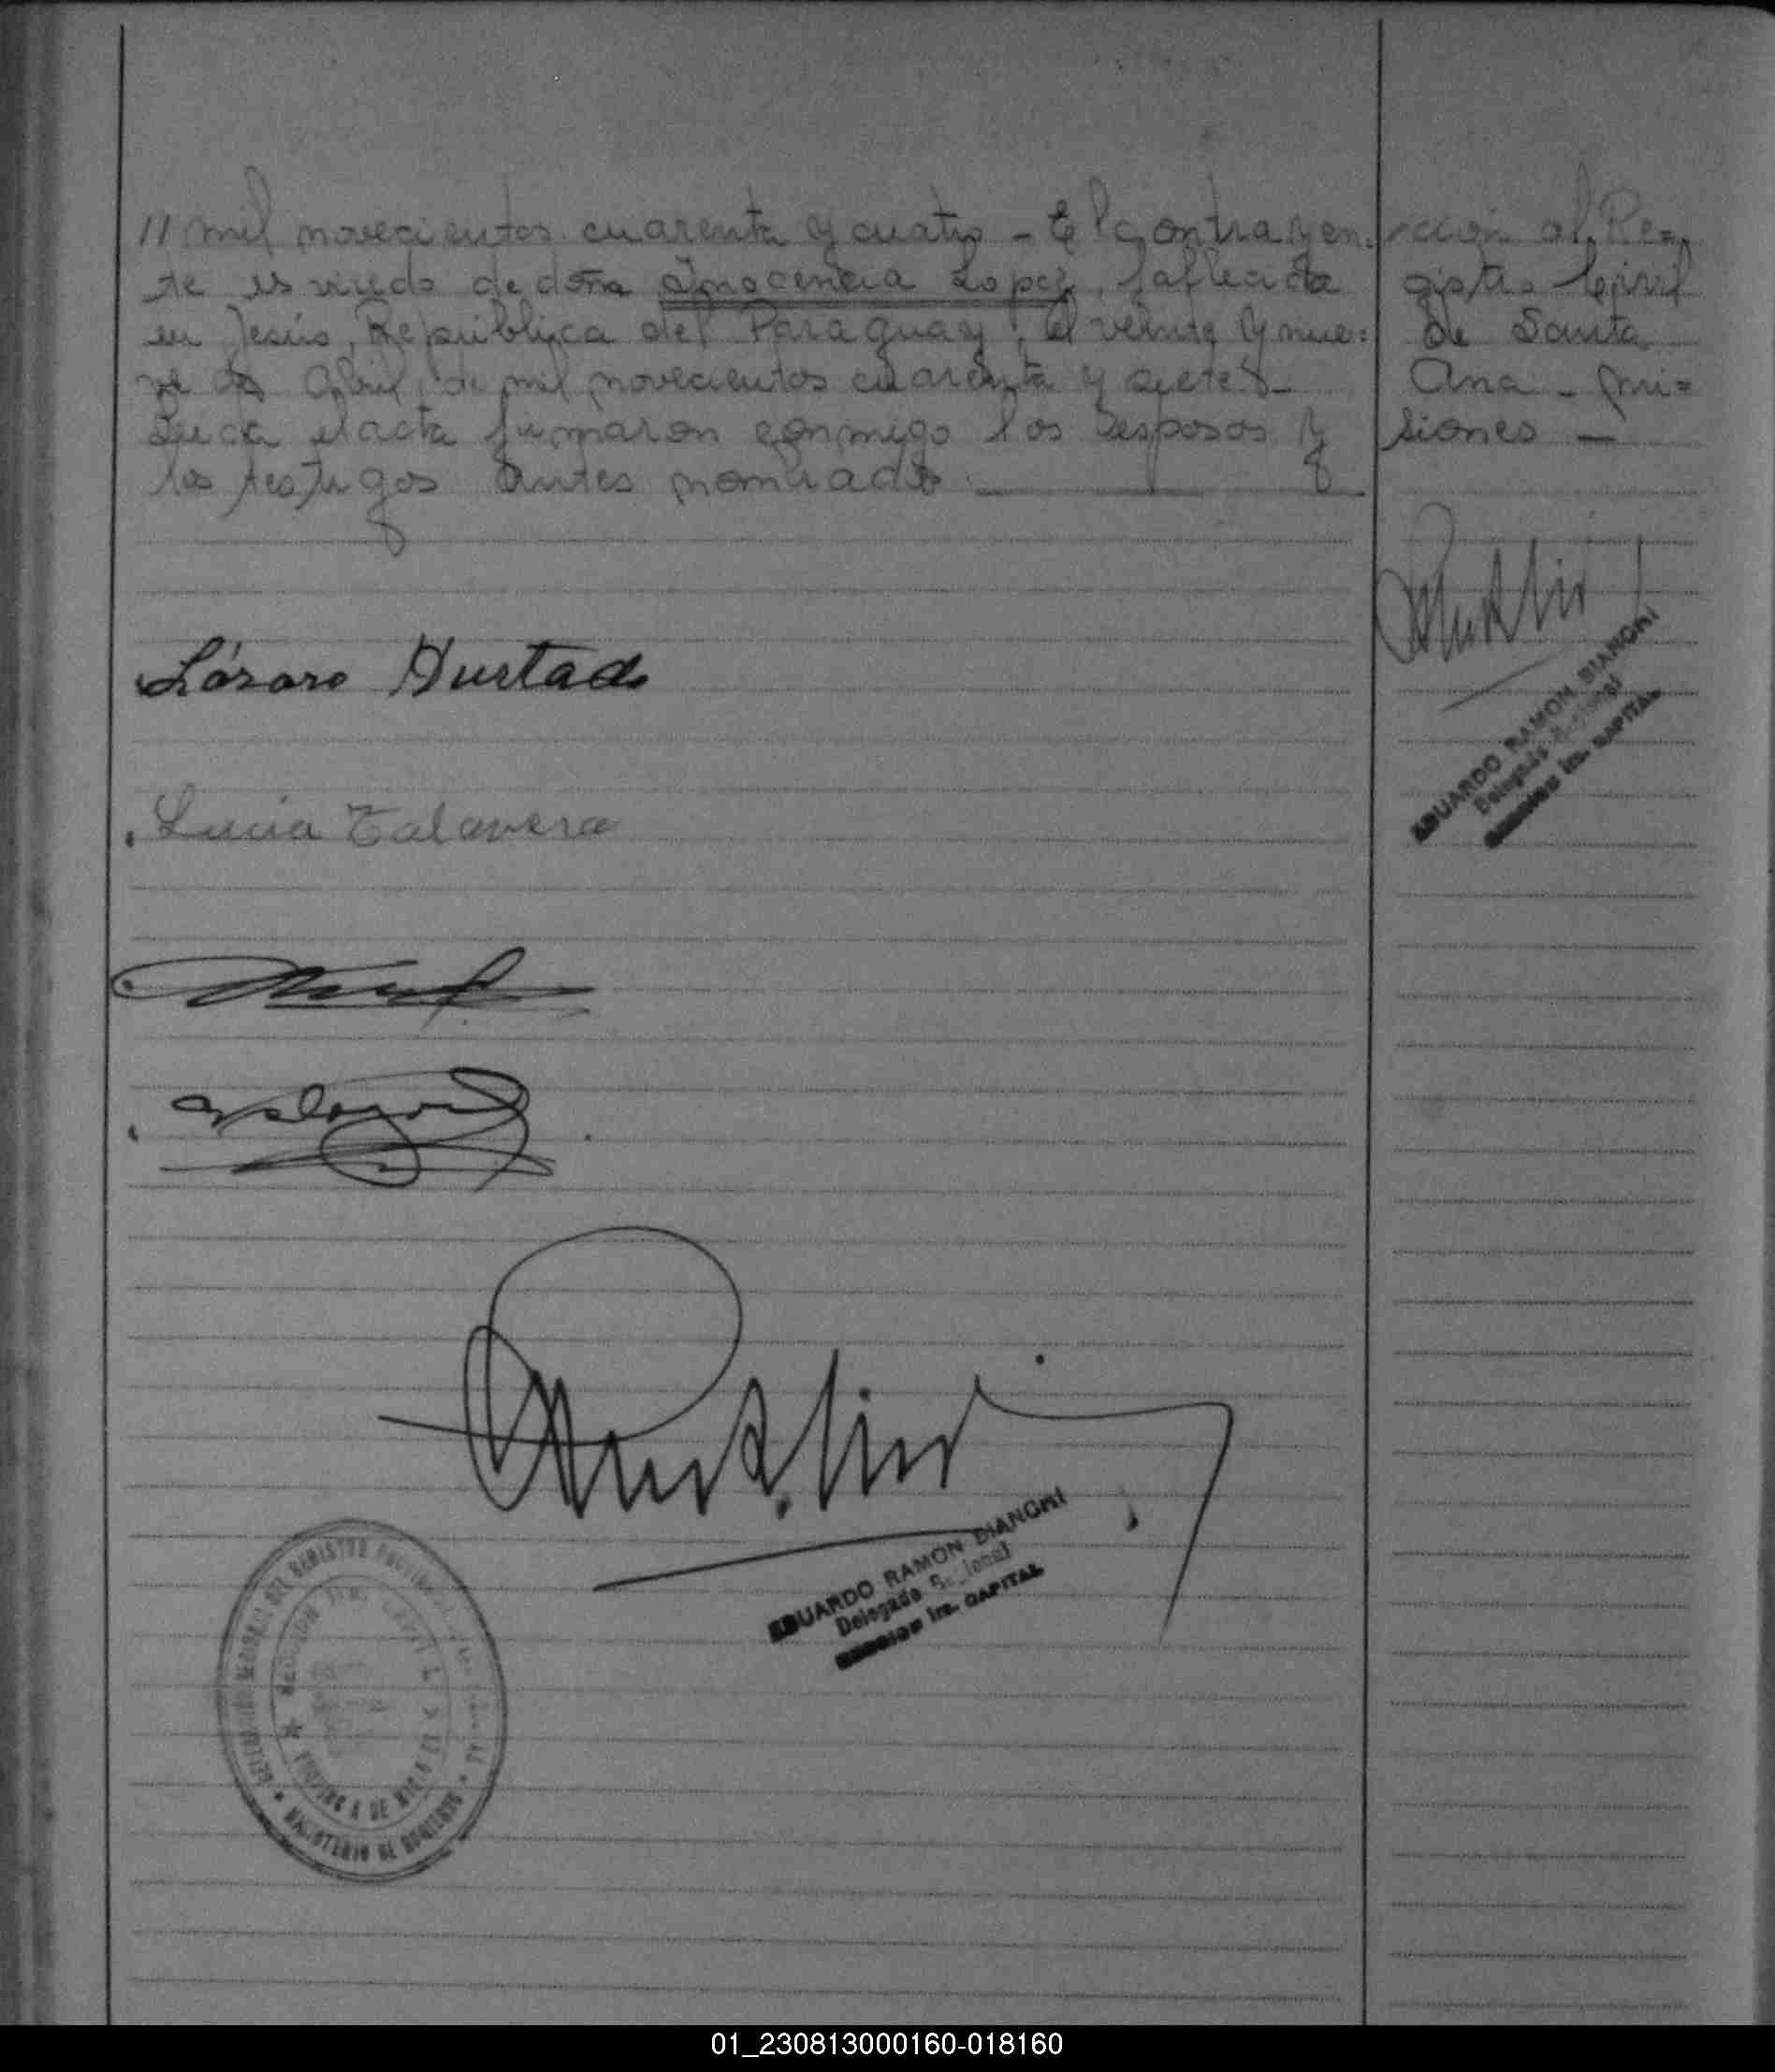 // mil novecientos cuarenta y cuatro - El contrayen:
te es viudo de doña Inocencia Lopez, fallecida
en Jesús, República del Paraguay, el veinte y nue:
ve de Abril de mil novecientos cuarenta y siete
Leida el acta firmaron conmigo los esposos y
los testigos antes nombrados
cción al Re=
gistro Civil
de Santa
Ana - Mi=
siones -
EDUARDO RAMON BIANCHI
Delegado Seccional
Sección 1ra. CAPITAL
Lázaro Hurtado
Lucia Talavera
EDUARDO RAMON BIANCHI
Delegado Seccional
Sección 1ra. CAPITAL
DEL REGISTRO PROVINCIAL
SECCION 1ra.
PROVINCIA DE MISIONES
MINISTERIO DE GOBIERNO
01_230813000160-018160